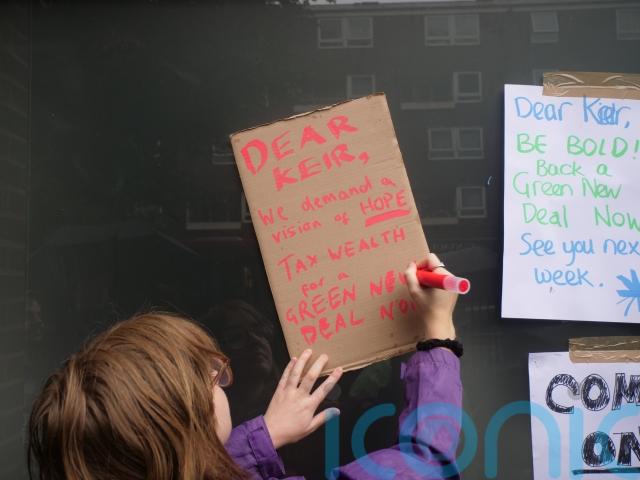 DEAR
KEIR,
We demand a
vision of HOPE
TAX WEALTH
for a
GREEN NEW
DEAL NOW
Dear Keir,
BE BOLD!
Back a
Green New
Deal Now
See you nex
week.
COM
ON
iconic